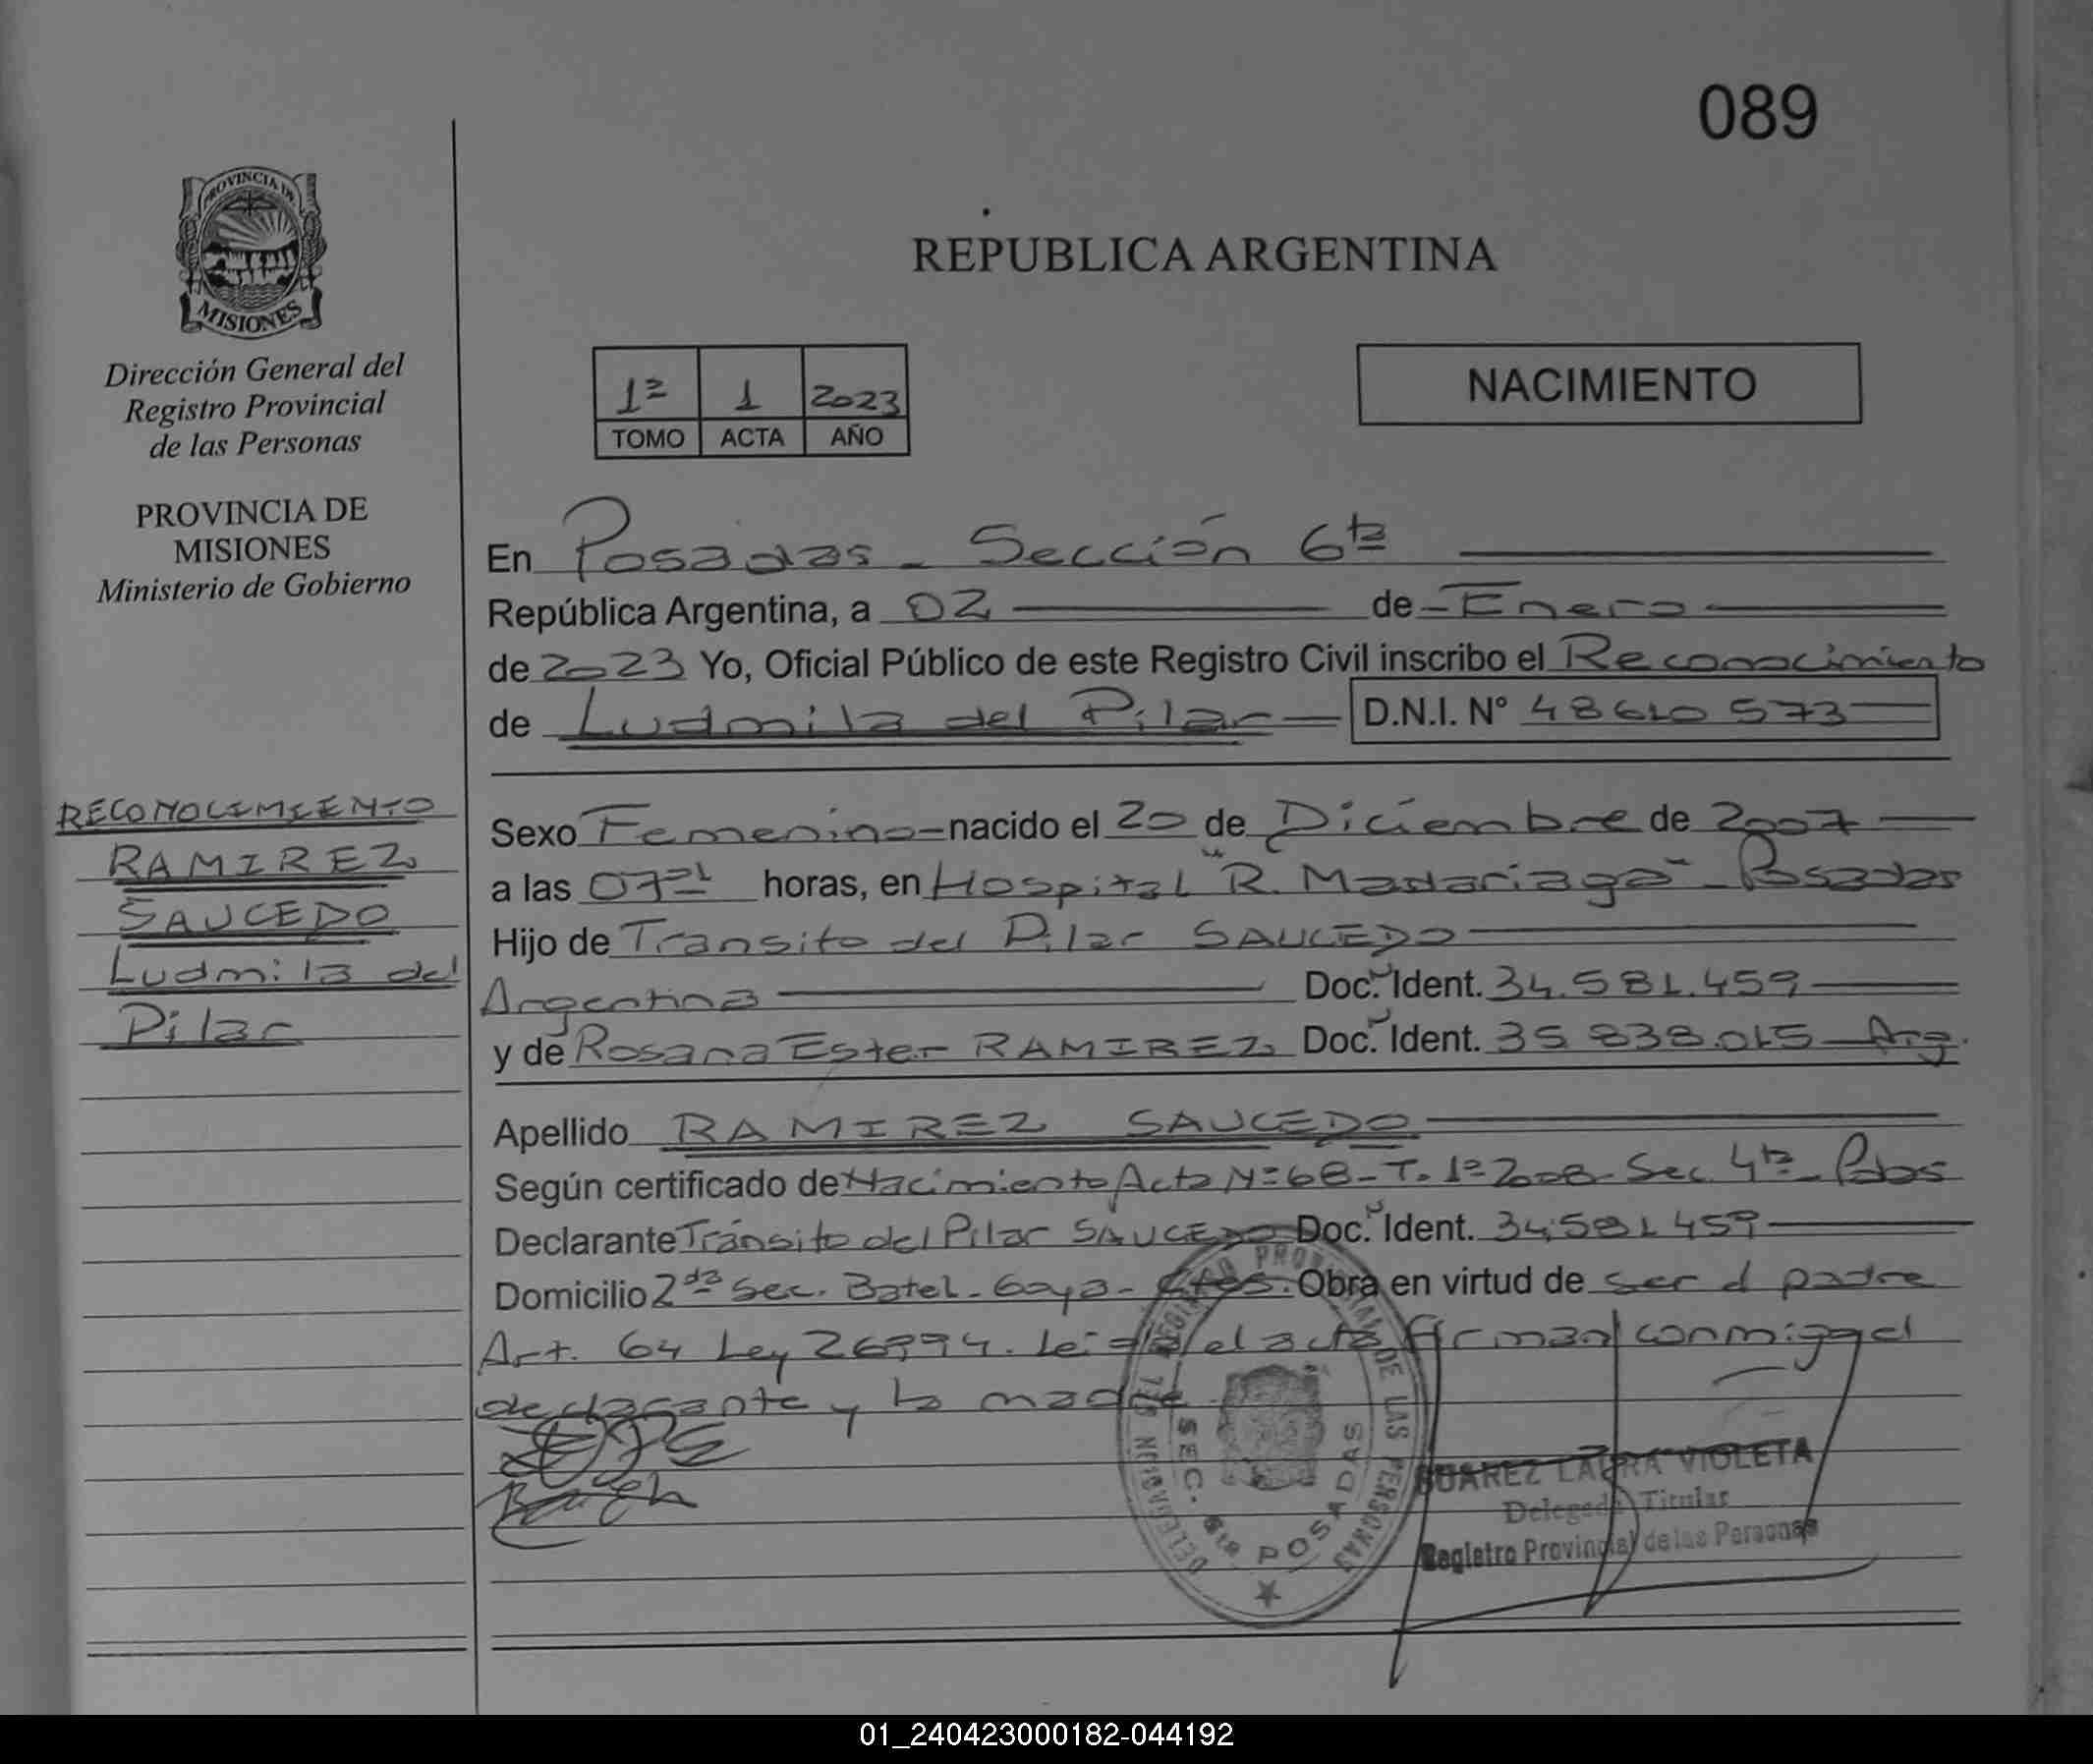 089
PROVINCIA DE
MISIONES
REPUBLICA ARGENTINA
Dirección General del
Registro Provincial
de las Personas
PROVINCIA DE
MISIONES
Ministerio de Gobierno
1º 1 2023
TOMO ACTA AÑO
NACIMIENTO
En Posadas - Sección 6ta
República Argentina, a 02 de Enero
de 2023 Yo, Oficial Público de este Registro Civil inscribo el Reconocimiento
de Ludmila del Pilar D.N.I. N° 48610573
RECONOCIMIENTO
RAMIREZ
SAUCEDO
Ludmila del
Pilar
Sexo Femenino nacido el 20 de Diciembre de 2007
a las 07 horas, en Hospital "R. Madariaga" - Posadas
Hijo de Transito del Pilar SAUCEDO
Argentina Doc. Ident. 34.581.459
y de Rosana Ester RAMIREZ Doc. Ident. 35 838.015 Arg.
Apellido RAMIREZ SAUCEDO
Según certificado de Nacimiento Acta Nº 68 - T. 1º 2008 - Sec. 4ta - Pdas
Declarante Tránsito del Pilar SAUCEDO Doc. Ident. 34.581 459
Domicilio 2da Sec. Batel - Goya - Ctes. Obra en virtud de ser el padre
Art. 64 Ley 26994. Leida el acta firman conmigo el
declarante y la madre
SEC. 6ta POSADAS
SUAREZ LAURA VIOLETA
Delegada Titular
Registro Provincial de las Personas
01_240423000182-044192